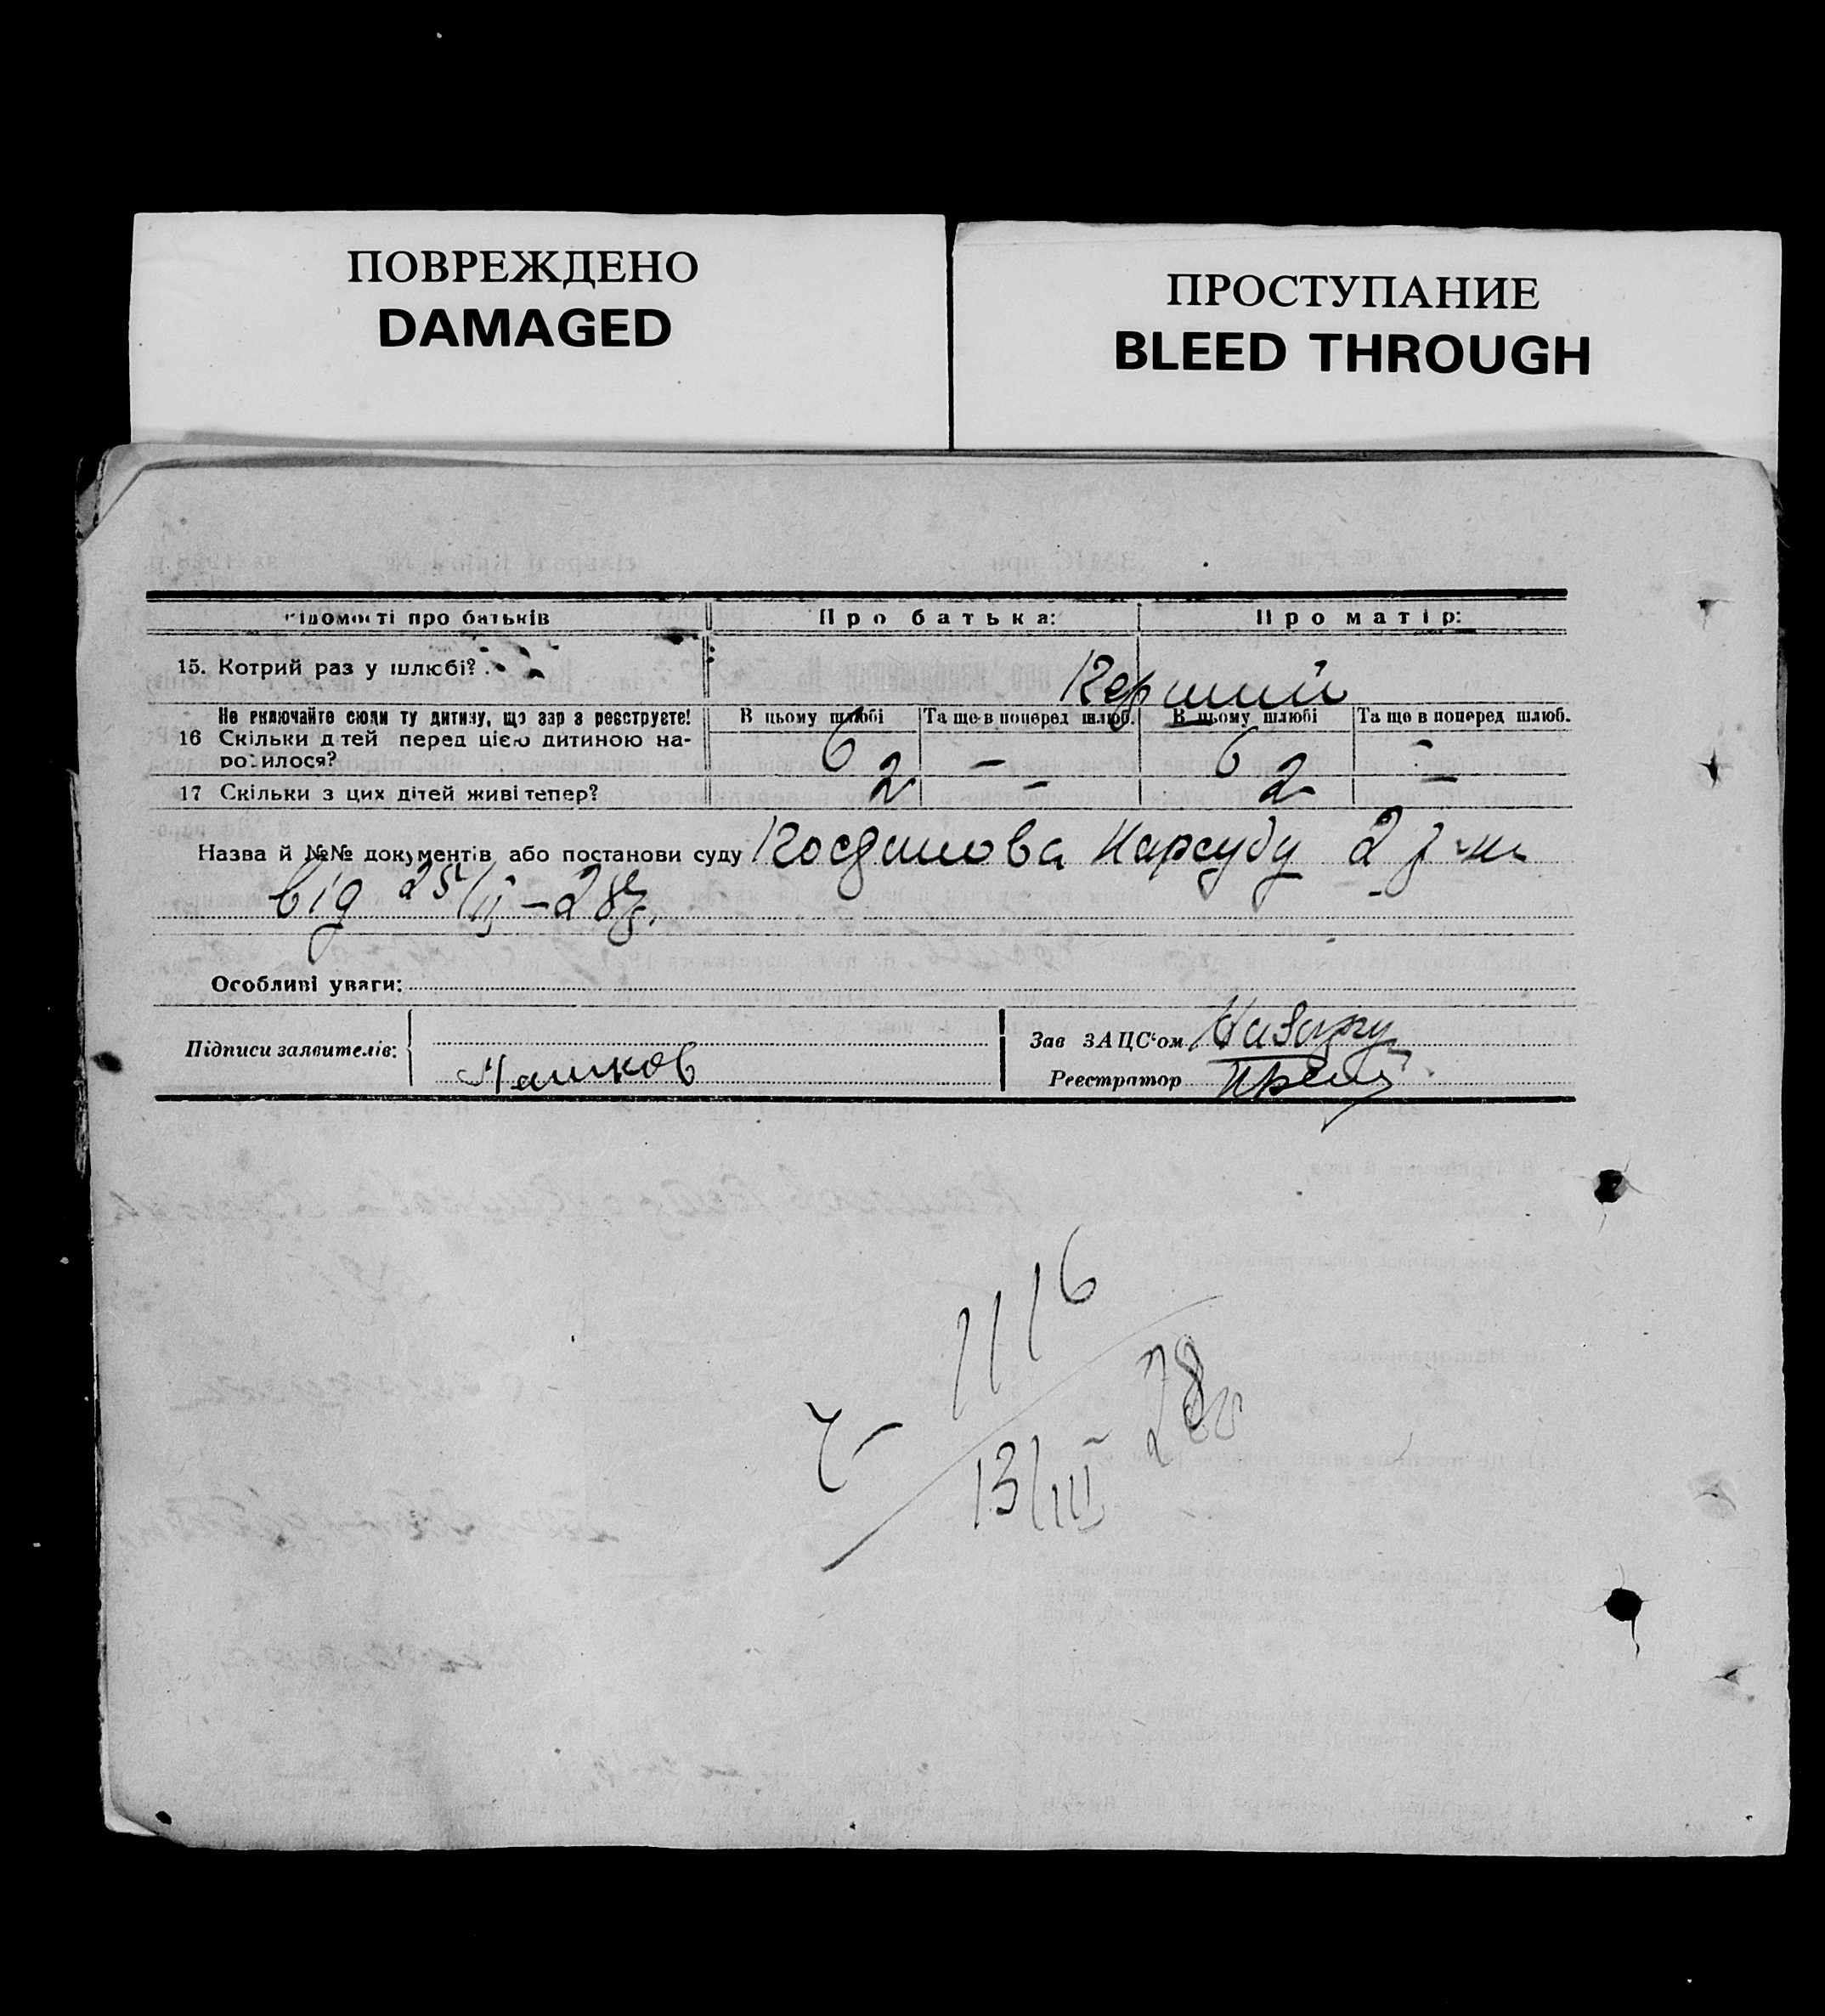 ПОВРЕЖДЕНО
DAMAGED
ПРОСТУПАНИЕ
BLEED THROUGH
ідомості про батьків Про батька: Про матір:
15. Котрий раз у шлюбі? Перший
Не включайте сюди ту дитину, що зараз реєструєте! В цьому шлюбі Та ще в поперед шлюб. В цьому шлюбі Та ще в поперед шлюб.
16 Скільки дітей перед цією дитиною на-
родилося? 6 – 6 –
17 Скільки з цих дітей живі тепер? 2 – 2 –
Назва й №№ документів або постанови суду Нарсуду 2
від 25/II–28р.
Особливі уваги:
Підписи заявителів: Зав ЗАЦС‘ом
Машков Реєстратор
1116
13/III–28